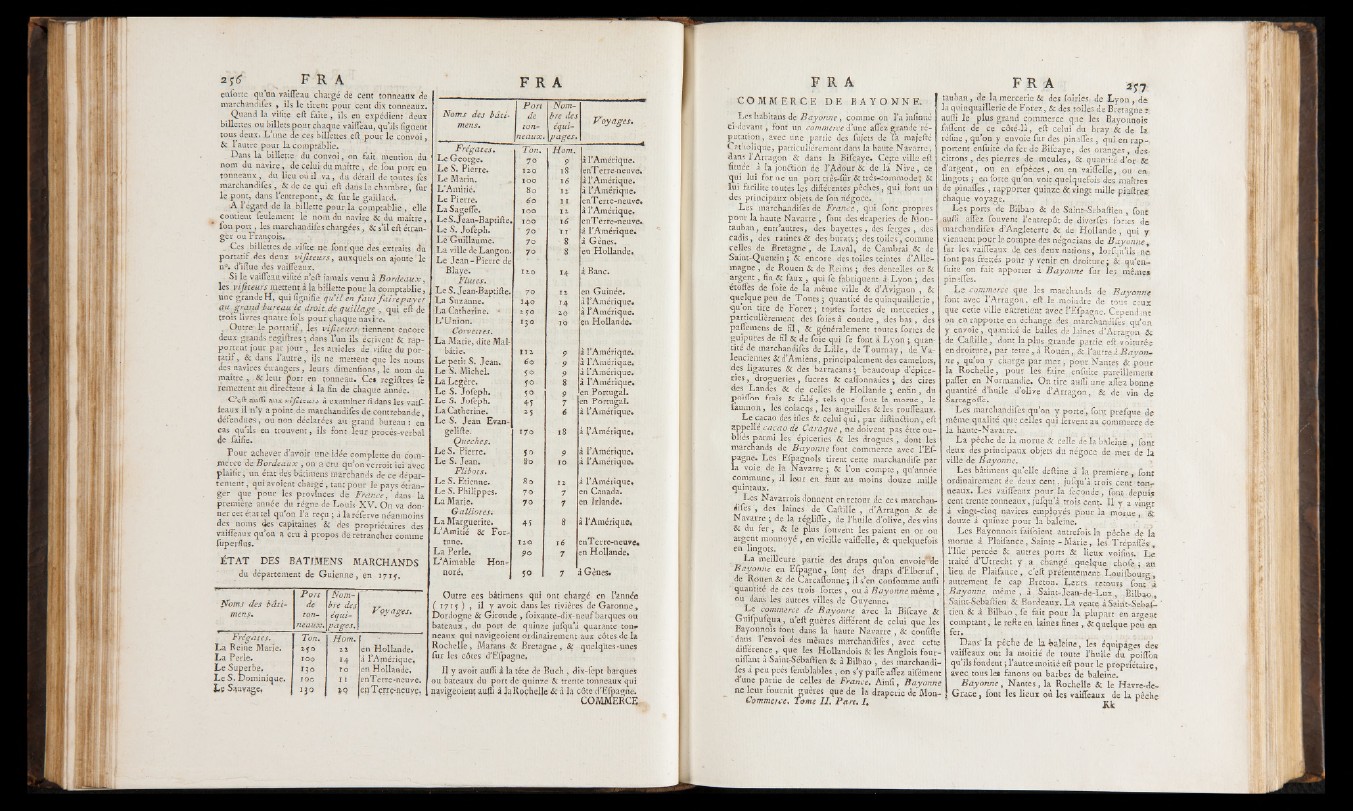 256 F R A
enforte qu'un vaiffeau chargé de cent tonneaux de
marchandifes , ils le tirent pour cent dix tonneaux.
Quand la vifite eft faite , ils en expédient deux
billettes ou billets pour chaque vaiffeau, qu'ils fignent
tous deux. L'une de ces billettes eft pour le convoi,
& l'autre pour la comptablie.
Dans la billette du convoi, on fait mention du
nom du navire, de celui du maître , de fon port en
tonneaux , du lieu où il va , du détail de toutes fes
marchandifes , & de ce qui eft dans la chambre, fur
le pont, dans l'entrepont, & fur le gaillard.
A l'égard de la billette pour la comptablie, elle
contient feulement le nom du navire & du maître,
fon port, les marchandifes chargées, & s'il eft étran-
ger ou François.
Ces billettes de vifite ne font que des extraits du
portatif des deux vifiteurs, auxquels on ajoute le
n°. d'iffue des vaiffeaux.
Si le vaiffeau vifité n'eft jamais venu à Bordeaux,
les vifiteurs mettent à la billette pour la comptablie,
une grande H, qui fignifie qu'il en faut faire payer
au grand bureau le droit de quillage , qui eft de
trois livres quatre fols pour chaque navire.
Outre le portatif, les vifiteurs tiennent encore
deux grands regiftres ; dans l'un ils écrivent & rap-
portent jour par jour, les articles de vifite du por-
tatif, & dans l'autre, ils ne mettent que les noms
des navires étrangers, leurs dimenfions, le nom du
maître , & leur port en tonneau. Ces regiftres fe
remettent au directeur à la fin de chaque année.
C'eft auffi aux vifiteurs à examiner fi dans les vaif-
feaux il n'y a point de marchandifes de contrebande,
défendues, ou non déclarées au grand bureau : en
cas qu'ils en trouvent, ils font leur procès-verbal
de faifie.
Pour achever d'avoir une idée complette du com-
merce de Bordeaux , on a cru qu'on verroit ici avec
plaifir, un état des bâtimens marchands de ce dépar-
tement, qui avoient chargé, tant pour le pays étran-
ger que pour les provinces de France, dans la
première année du règne de Louis XV. On va don-
ner cet état tel qu'on l'a reçu ; à la réferve néanmoins
des noms des capitaines & des propriétaires des
vaiffeaux qu'on a cru à propos de retrancher comme
fuperflus.
ÉTAT DES BATIMENS MARCHANDS
du département de Guienne, en 1715.
Noms des bâti-mens. Port de ton-neaux. Nom-bre des équi-pages. Voyages.
Frégates. Ton. Hom.
La Reine Marie. 250 22 en Hollande.
La Perle. 100 14 à l'Amérique.
Le Superbe. 130 10 en Hollande.
Le S. Dominique. 100 11 en Terre-neuve.
Le Sauvage. 130 19 en Terre-neuve.
F R A
Noms des bâti-mens. Port de ton-neaux. Nom-bre des équi-pages. Voyages.
Frégates. Ton. Hom.
Le George. 70 9 à l'Amérique.
Le S. Pierre. 120 18 en Terre-neuve.
Le Marin. 100 16 à l'Amérique.
L'Amitié. 80 12 à l'Amérique.
Le Pierre. 60 11 en Terre-neuve.
La Sageffe. 100 12 à l'Amérique.
Le S. Jean-Baptifte. 100 16 en Terre-neuve.
Le S. Jofeph. 70 11 à l'Amérique.
Le Guillaume. 70 8 à Gênes.
La ville de Langon. 70 8 en Hollande.
Le Jean-Pierre de
Blaye. 120 14 à Banc.
Flutes.
Le S. Jean-Baptifte. 70 12 en Guinée.
La Suzanne. 140 14 à l'Amérique.
La Catherine. 250 20 à l'Amérique.
L'Union. 130 10 en Hollande.
Corvettes.
La Marie, dite Mal-
bâtie. 112 9 à l'Amérique.
Le petit S. Jean. 60 9 à l'Amérique.
Le S. Michel. 50 9 à l'Amérique.
La Legère. 50 8 à l'Amérique.
Le S. Jofeph. 50 9 en Portugal.
Le S. Jofeph. 45 7 en Portugal.
La Catherine. 25 6 à l'Amérique.
Le S. Jean Evan-
gelifte. 170 18 à l'Amérique.
Queches.
Le S. Pierre. 50 9 à l'Amérique.
Le S. Jean. 80 10 à l'Amérique.
Flibots.
Le S. Etienne. 80 12 à l'Amérique.
Le S. Philippes. 70 7 en Canada.
La Marie. 70 7 en Irlande.
Galliotes.
La Marguerite. 45 8 à l'Amérique.
L'Amitié & For-
tune. 120 16 en Terre-neuve.
La Perle. 90 7 en Hollande.
L'Aimable Hon-
noré. 50 7 à Gênes.
Outre ces bâtimens qui ont chargé en l'année
( 1715 ) , il y avoit dans les rivières de Garonne,
Dordogne & Gironde , foixante-dix-neuf barques ou
bateaux , du port de quinze jufqu'à quarante ton-
neaux qui navigeoient ordinairement aux côtes de la
Rochelle, Marans & Bretagne , & quelques-unes
fur les côtes d'Efpagne.
Il y avoit auffi à la tête de Buch , dix-fept barques
ou bateaux du port de quinze & trente tonneaux qui
navigeoient auffi à la Rochelle & à la côte d'Efpagne.
COMMERCE
F R A
COMMERCE DE BAYONNE.
Les habitans de Bayonne , comme on l'a infinué
ci-devant , font un commerce d'une affez grande ré-
putation, avec une partie des fujets de fa majefté
Catholique, particulièrement dans la haute Navarre,
dans l'Arragon & dans la Bifcaye. Cette ville eft
fituée à la jonction de l'Adour & de la Nive, ce
qui lui forme un port très-fûr & très-commode, &
lui facilite toutes les différentes pêches, qui font un
des principaux objets de fon négoce.
Les marchandifes de France, qui font propres
pour la haute Navarre , font des draperies de Mon-
tauban, entr'autres, des bayettes , des ferges , des
cadis, des ratines & des burats ; des toiles, comme
celles de Bretagne , de Laval, de Cambrai & de
Saint-Quentin ; & encore des toiles teintes d'Alle-
magne , de Rouen & de Reims ; des dentelles or &
argent , fin & faux , qui fe fabriquent à Lyon ; des
étoffes de foie de la même ville & d'Avignon , &
quelque peu de Tours ; quantité de quinquaillerie,
qu'on tire de Forez ; toutes fortes de merceries ,
particulièrement des foies à coudre , des bas , des
paffemens de fil, & généralement toutes fortes de
guipures de fil & de foie qui fe font à Lyon ; quan-
tité de marchandifes de Lille, de Tournay, de Va-
lenciennes & d'Amiens, principalement des camelots,
des ligatures & des barracans ; beaucoup d'épice-
ries , drogueries , fucres & caffonnades ; des cires
des Landes & de celles de Hollande ; enfin , du
poiffon frais & falé , tels que font la morue, le
faumon , les colacqs , les anguilles & les rouffeaux.
Le cacao des ifles & celui qui, par diftinction, eft
appellé cacao de Caraque , ne doivent pas être ou-
bliés parmi les épiceries & les drogues , dont les
marchands de Bayonne font commerce avec l'Ef-
pagne. Les Efpagnols tirent cette marchandife par
la voie de la Navarre ; & l'on compte, qu'année
commune, il leur en faut au moins douze mille
quintaux.
Les Navarrois donnent en retour de ces marchan-
difes , des laines de Caftille , d'Arragon & de
Navarre ; de la régliffe, de l'huile d'olive, des vins
& du fer , & le plus fouvent les paient en or ou
argent monnoyé , en vieille vaiffelle, & quelquefois
en lingots.
La meilleure partie des draps qu'on envoie de
Bayonne en Efpagne, font des draps d'Elbœuf,
de Rouen & de Carcaffonne ; il s'en confomme auffi
quantité de ces trois fortes , ou à Bayonne même,
ou dans les autres villes de Guyenne.
Le commerce de Bayonne avec la Bifcaye &
Guifpufcua , n'eft guères différent de celui que les
Bayonnois font dans la haute Navarre , & confifte
dans l'envoi des mêmes marchandifes, avec cette
différence , que les Hollandois & les Anglois four-
niffant à Saint-Sébaftien & à Bilbao , des marchandi-
fes à peu près femblables , on s'y paffe affez aifément
d'une partie de celles de France. Ainfi, Bayonne
ne leur fournit guères que de la draperie de Mon-
Commerce. Tome II. Part. I.
F R A 257
tauban, de la mercerie & des foiries de Lyon , de
la quinquaillerie de Forez, & des toiles de Bretagne :
auffi le plus grand commerce que les Bayonnois
faffent de ce côté-là, eft celui du bray & de la
réfine , qu'on y envoie fur des pinaffes, qui en rap-
portent enfuite de fer de Bifcaye, des oranges , des
citrons , des pierres de meules, & quantité d'or &
d'argent , ou en efpèces , ou en vaiffelle , ou en
lingots ; en forte qu'on voit quelquefois des maîtres
de pinaffes , rapporter quinze & vingt mille piaftres
chaque voyage.
Les ports de Bilbao & de Saint-Sebaftien , font
auffi affez fouvent l'entrepôt de diverfes fortes de
marchandifes d'Angleterre & de Hollande , qui y
viennent pour le compte des négocians de Bayonne,
fur les vaiffeaux de ces deux nations , lorfqu'ils ne
font pas frettés pour y venir en droiture ; & qu'en-
fuite on fait apporter à Bayonne fur les mêmes
pinaffes.
Le commerce que les marchands de Bayonne
font avec l'Arragon, eft le moindre de tous ceux
que cette ville entretient avec l'Efpagne. Cependant
on en rapporte en échange des marchandifes qu'on
y envoie , quantité de balles de laines d'Arragon &
de Caftille , dont la plus grande partie eft voiturée
en droiture, par terre, à Rouen, & l'autre à Bayon-
ne , qu'on y charge par mer , pour Nantes & pour
la Rochelle , pour les faire enfuite pareillement
paffer en Normandie. On tire auffi une affez bonne
quantité d'huile d'olive d'Arragon, & de vin de
Sarragoffe.
Les marchandifes qu'on y porte, font prefque de
même qualité que celles qui fervent au commerce de
la haute-Navarre.
La pêche de la morue & celle de la baleine , font
deux des principaux objets du négoce de mer de la
ville de Bayonne.
Les bâtimens qu'elle deftine à la premiere , font
ordinairement de deux cent, jufqu'à trois cent ton-
neaux. Les vaiffeaux pour la feconde , font depuis
cent trente tonneaux, jufqu'à trois cent. Il y a vingt
à vingt-cinq navires employés pour la morue , &
douze à quinze pour la baleine.
Les Bayonnois faifoient autrefois la pêche de la
morue à Plaifance , Sainte-Marie, les Trépaffés,
l'Ifle percée & autres ports & lieux voifins. Le
traité d'Utrecht y a changé quelque chofe ; au
lieu de Plaifance, c'eft préfentement Louifbourg,
autrement le cap Breton. Leurs retours font à
Bayonne même , à Saint-Jean-de-Luz , Bilbao,
Saint-Sebaftien & Bordeaux. La vente à Saint-Sebaf-
tien & à Bilbao , fe fait pour la plupart en argent
comptant, le refte en laines fines, & quelque peu en
fer.
Dans la pêche de la baleine, les équipages des
vaiffeaux ont la moitié de toute l'huile du poiffon
qu'ils fondent ; l'autre moitié eft pour le propriétaire,
avec tous les fanons ou barbes de baleine.
Bayonne , Nantes, la Rochelle & le Havre-de-
Grace , font les lieux où les vaiffeaux de la pêche
Kk